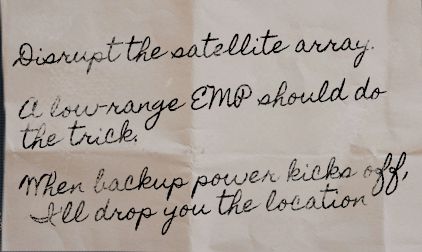 Disrupt the satellite array.
A low-range EMP should do
the trick.
When backup power kicks off,
I'll drop you the location